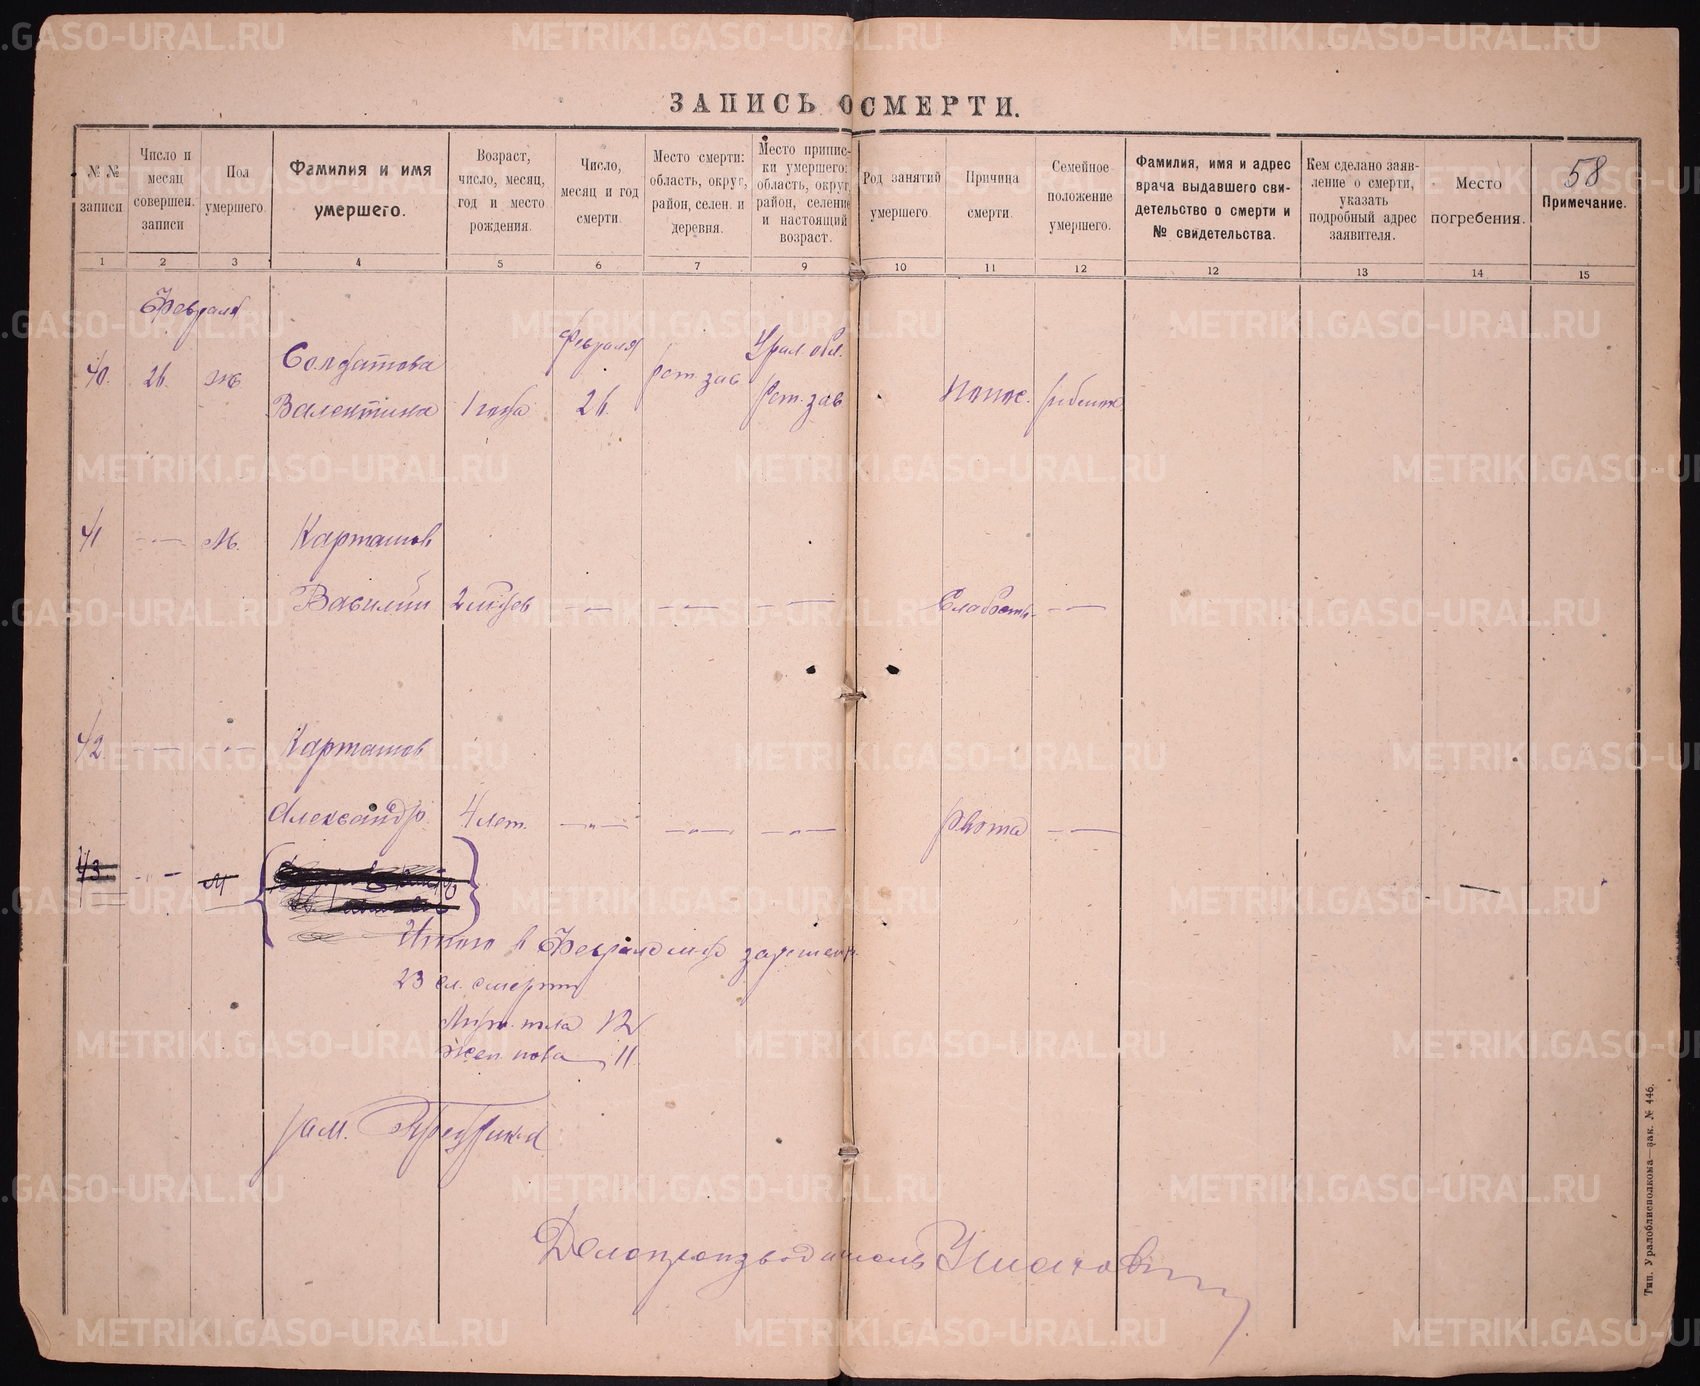 ЗАПИСЬ О СМЕРТИ.
58
№ № записи
Число и месяц совершен. записи
Пол умершего
Фамилия и имя умершего.
Возраст, число, месяц, год и место рождения.
Число, месяц и год смерти.
Место смерти: область, округ, район, селен. и деревня.
Место приписки умершего: область, округ, район, селение и настоящий возраст.
Род занятий умершего.
Причина смерти.
Семейное положение умершего.
Фамилия, имя и адрес врача выдавшего свидетельство о смерти и № свидетельства.
Кем сделано заявление о смерти, указать подробный адрес заявителя.
Место погребения.
Примечание.
1 2 3 4 5 6 7 9 10 11 12 12 13 14 15
Февраля
Солдатова Февраля Урал. обл.
40. 26. ж Валентина 1 года 26. зав зав Понос. ребенок
41 — „ — м. Карташов
Василий 2 — „ — — „ — — „ — Слабость — „ —
42 — „ — — „ — Карташов
Александр. 4 лет. — „ — — „ — — „ — рвота — „ —
43 — „ — м
Итого в Феврале м-це
23 сл. смерти
Муж. пола 12
Жен. пола — 11.
Зам.
Делопроизводитель
Тип. Уралоблисполкома—зак. № 446.
METRIKI.GASO-URAL.RU